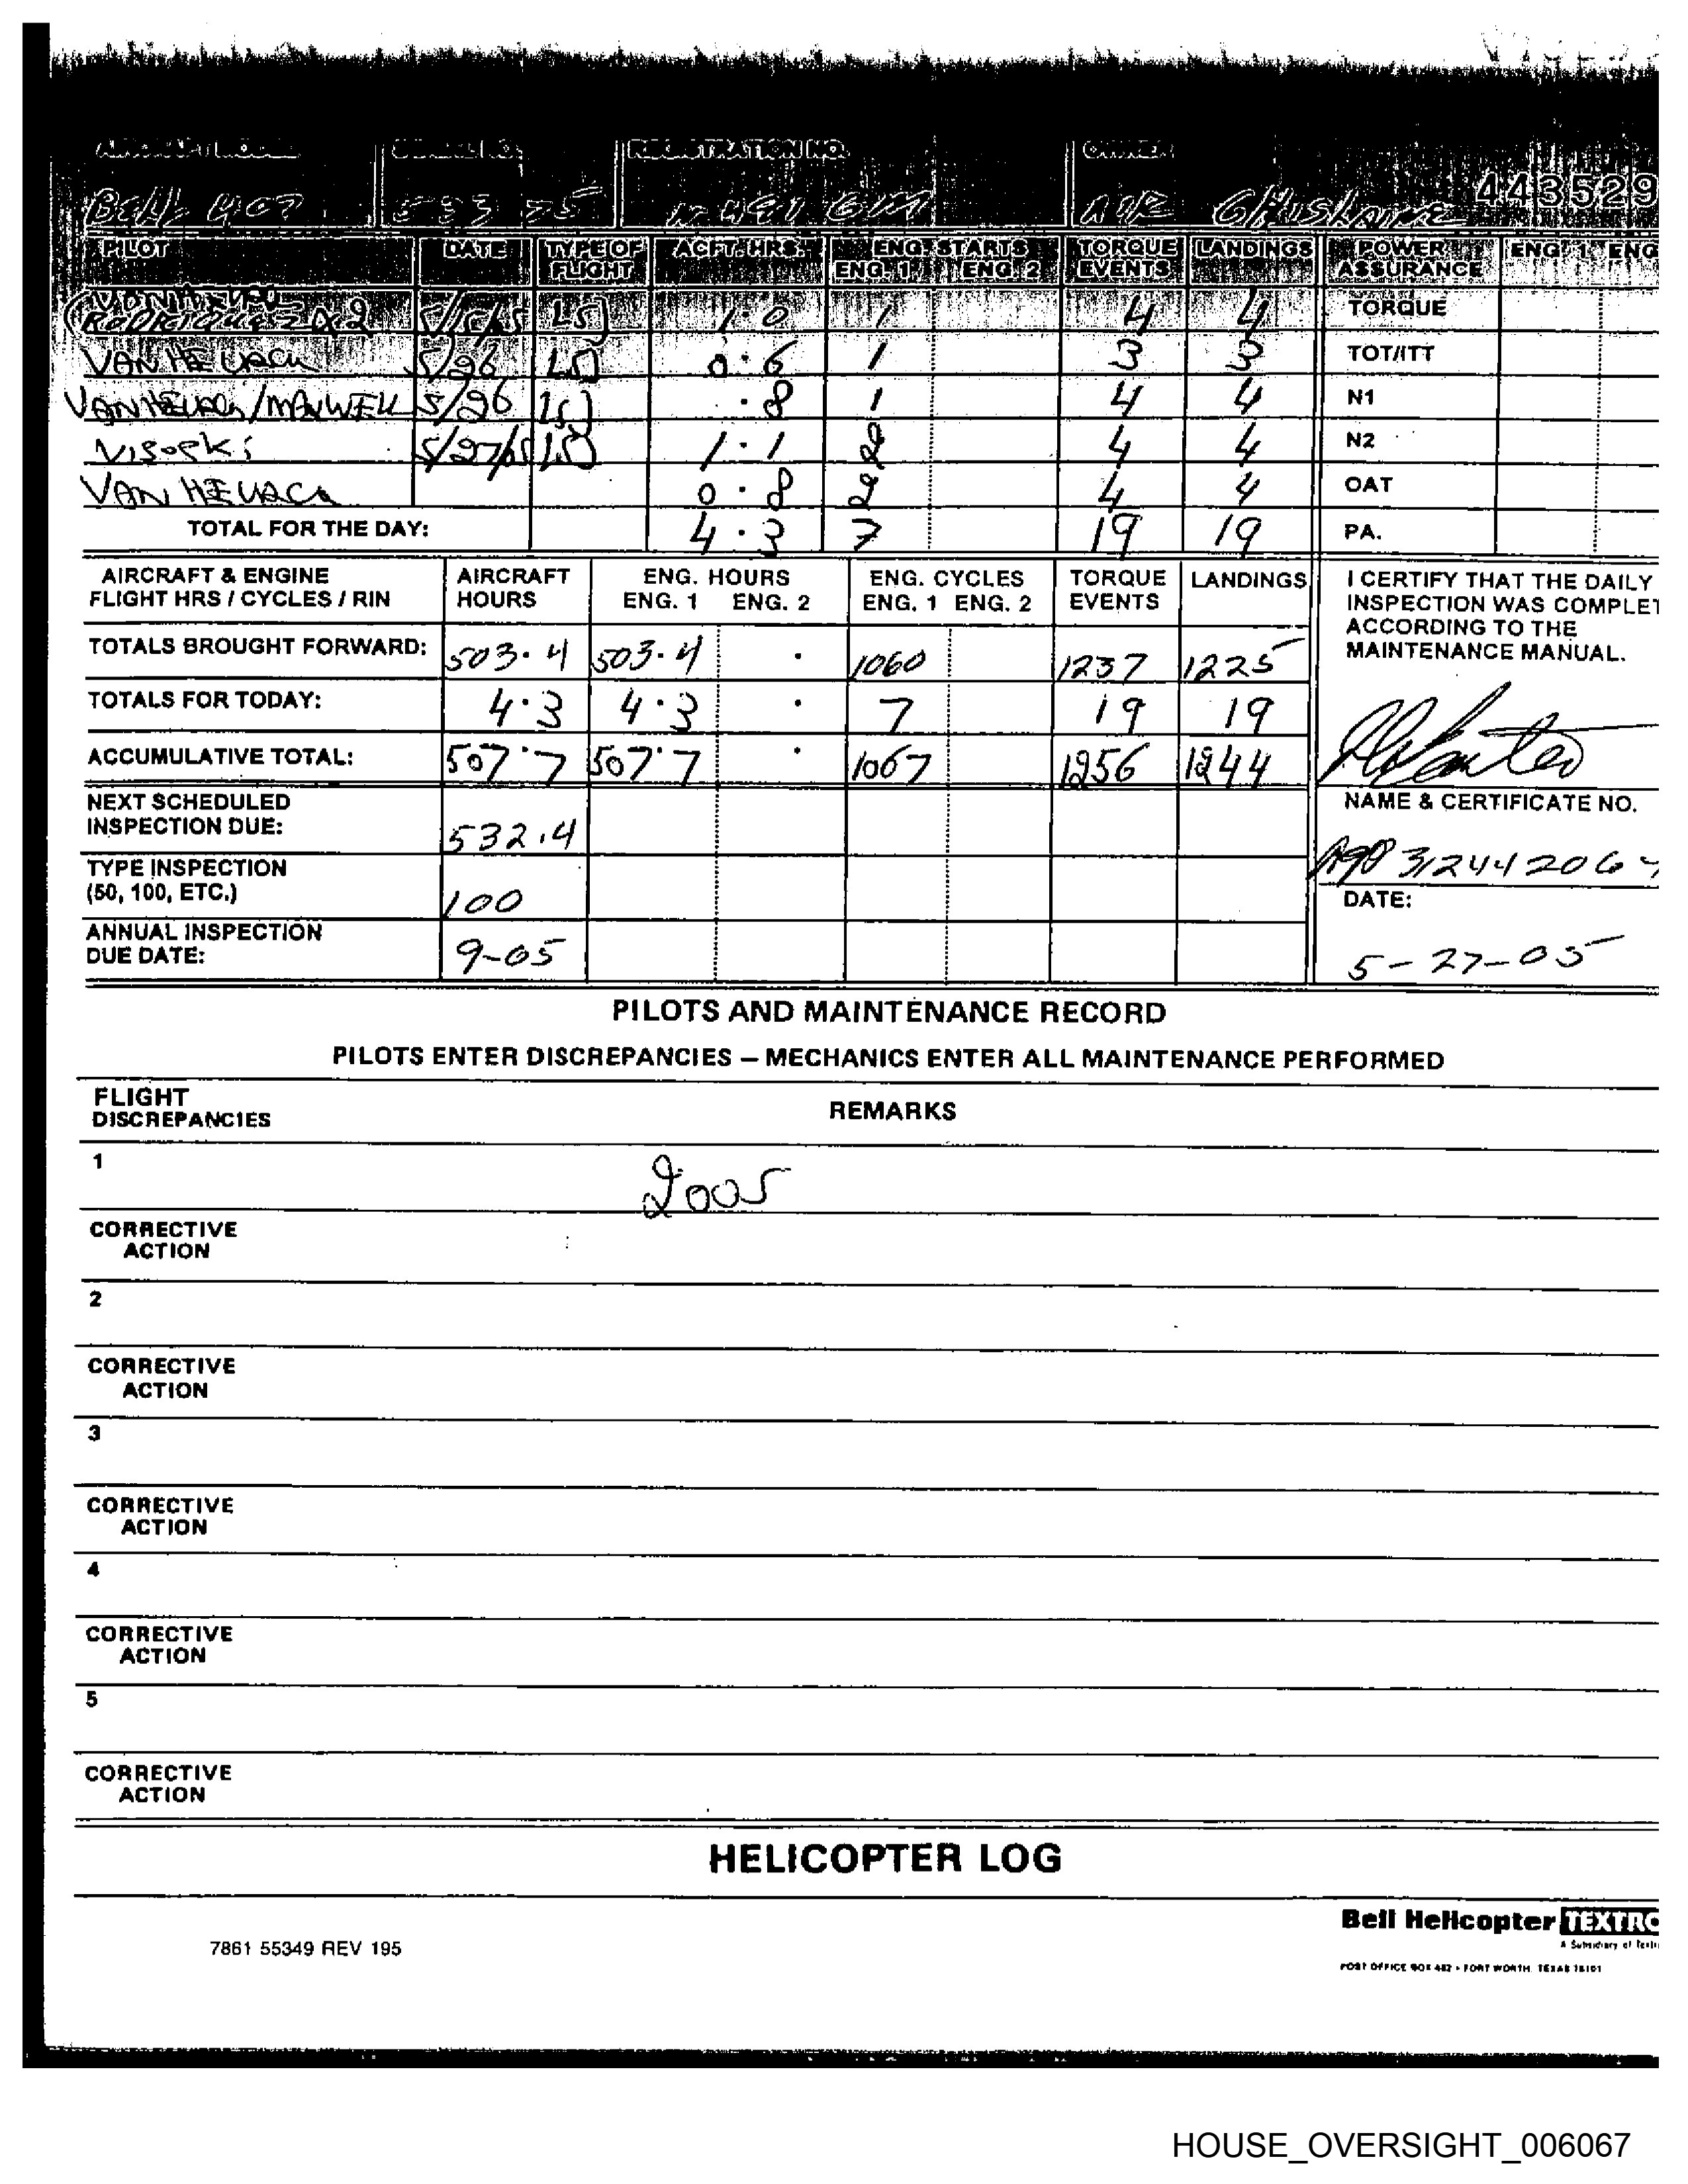 AIRCRAFT MODEL SERIAL NO. REGISTRATION NO. OWNER
BELL 407 533 75 N 491 GM AIR GHISLAINE 443529
PILOT DATE TYPE OF FLIGHT ACFT. HRS. ENG. STARTS ENG. 1 ENG. 2 TORQUE EVENTS LANDINGS POWER ASSURANCE ENG. 1 ENG
RODRIGUEZ X2 1.0 1 4 4 TORQUE
5/26 0.6 1 3 3 TOT/ITT
5/26 .8 1 4 4 N1
VISOSKI 5/27/05 1.1 2 4 4 N2
0.8 2 4 4 OAT
TOTAL FOR THE DAY: 4.3 7 19 19 PA.
AIRCRAFT & ENGINE FLIGHT HRS / CYCLES / RIN AIRCRAFT HOURS ENG. HOURS ENG. 1 ENG. 2 ENG. CYCLES ENG. 1 ENG. 2 TORQUE EVENTS LANDINGS
I CERTIFY THAT THE DAILY
INSPECTION WAS COMPLET
ACCORDING TO THE
MAINTENANCE MANUAL.
TOTALS BROUGHT FORWARD: 503.4 503.4 . 1060 1237 1225
TOTALS FOR TODAY: 4.3 4.3 . 7 19 19
ACCUMULATIVE TOTAL: 507.7 507.7 . 1067 1256 1244
NEXT SCHEDULED
INSPECTION DUE: 532.4
NAME & CERTIFICATE NO.
A&P 312442064
TYPE INSPECTION
(50, 100, ETC.) 100
DATE:
ANNUAL INSPECTION
DUE DATE: 9-05
5-27-05
PILOTS AND MAINTENANCE RECORD
PILOTS ENTER DISCREPANCIES – MECHANICS ENTER ALL MAINTENANCE PERFORMED
FLIGHT
DISCREPANCIES
REMARKS
1
2005
CORRECTIVE
ACTION
2
CORRECTIVE
ACTION
3
CORRECTIVE
ACTION
4
CORRECTIVE
ACTION
5
CORRECTIVE
ACTION
HELICOPTER LOG
Bell Helicopter TEXTRO
A Subsidiary of Textr
7861 55349 REV 195
POST OFFICE BOX 482 • FORT WORTH, TEXAS 76101
HOUSE_OVERSIGHT_006067